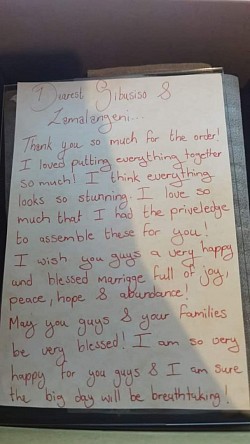 Dearest Sibusiso &
Zamalangeni...
Thank you so much for the order!
I loved putting everything together
so much! I think everything
looks so stunning. I love so
much that I had the priveledge
to assemble these for you!
I wish you guys a very happy
and blessed marriage full of joy,
peace, hope & abundance!
May you guys & your families
be very blessed! I am so very
happy for you guys & I am sure
the big day will be breathtaking!